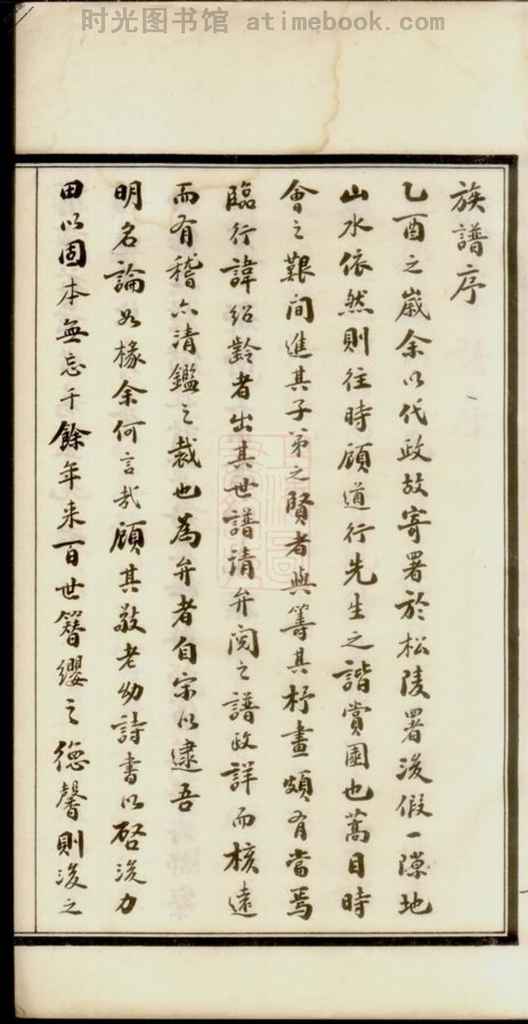 时光图书馆 atimebook.com
族譜序
乙酉之歲余以代政故寄署於松陵署後假一隙地
山水依然則往時顧道行先生之諧賞園也蒿目時
會之艱間進其子弟之賢者與籌其杼畫頗有當焉
臨行諱紹齡者出其世譜請弁閱之譜政詳而核遠
而有稽亦清鑑之裁也為弁者自宗以逮吾
明名論如椽余何言哉顧其敬老幼詩書以啓後力
田以固本無忘千餘年來百世簪纓之德馨則後之